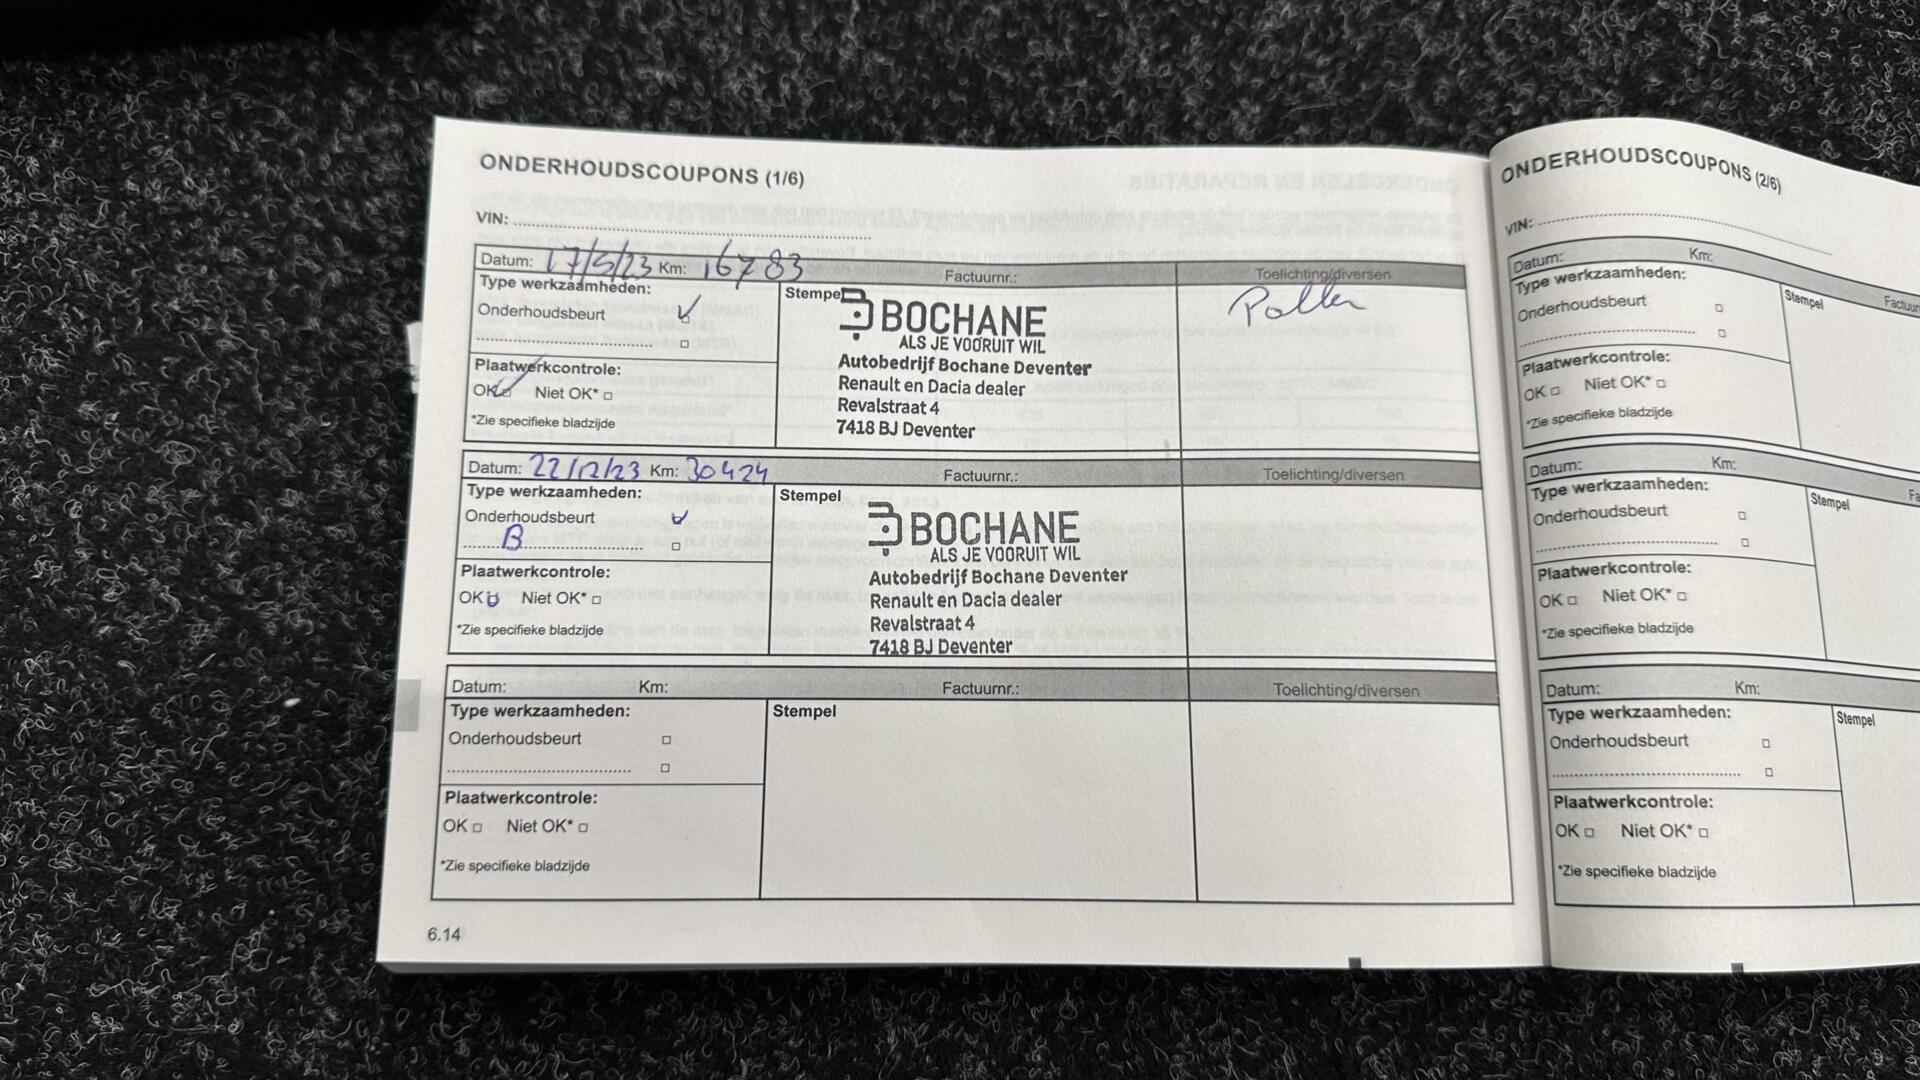 ONDERHOUDSCOUPONS (1/6)
VIN:
Datum: 17/5/23 Km: 16783 Factuurnr.: Toelichting/diversen
Type werkzaamheden: Stempel
Onderhoudsbeurt
BOCHANE
ALS JE VOORUIT WIL
Autobedrijf Bochane Deventer
Renault en Dacia dealer
Revalstraat 4
7418 BJ Deventer
Pollen
Plaatwerkcontrole:
OK Niet OK*
*Zie specifieke bladzijde
Datum: 22/12/23 Km: 30424 Factuurnr.: Toelichting/diversen
Type werkzaamheden: Stempel
Onderhoudsbeurt
B
BOCHANE
ALS JE VOORUIT WIL
Autobedrijf Bochane Deventer
Renault en Dacia dealer
Revalstraat 4
7418 BJ Deventer
Plaatwerkcontrole:
OK Niet OK*
*Zie specifieke bladzijde
Datum: Km: Factuurnr.: Toelichting/diversen
Type werkzaamheden: Stempel
Onderhoudsbeurt
Plaatwerkcontrole:
OK Niet OK*
*Zie specifieke bladzijde
6.14
ONDERHOUDSCOUPONS (2/6)
VIN:
Datum: Km:
Type werkzaamheden: Stempel
Onderhoudsbeurt
Plaatwerkcontrole:
OK Niet OK*
*Zie specifieke bladzijde
Datum: Km:
Type werkzaamheden: Stempel
Onderhoudsbeurt
Plaatwerkcontrole:
OK Niet OK*
*Zie specifieke bladzijde
Datum: Km:
Type werkzaamheden: Stempel
Onderhoudsbeurt
Plaatwerkcontrole:
OK Niet OK*
*Zie specifieke bladzijde